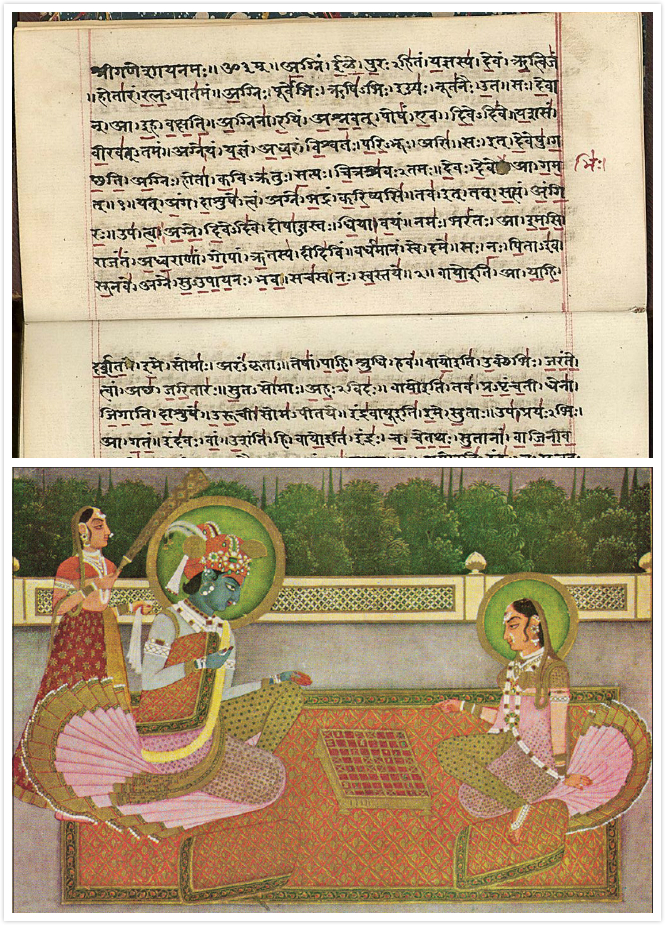 श्रीगणेशायनमः॥ॐ३म्॥अग्निं।ईळे।पुरःऽहितं।यज्ञस्य।देवं।ऋत्विजं
।होतारं।रत्नऽधातमं॥अग्निः।पूर्वेभिः।ऋषिऽभिः।ईड्यः।नूतनैः।उत॥सः।देवा
न्।आ।इह।वक्षति॥अग्निना।रयिं।अश्नवत्।पोषं।एव।दिवेऽदिवे॥यशसं।
वीरवत्ऽतमं॥अग्नेयं।यज्ञं।अध्वरं।विश्वतः।परिऽभूः।असि॥सः।इत्।देवेषु।ग
च्छति॥अग्निः।होता।कविऽक्रतुः।सत्यः।चित्रश्रवःऽतमः॥देवः।देवे।आ।गम
भिः।
त्॥१॥यत्।अंग।दाशुषे।त्वं।अग्ने।भद्रं।करिष्यसि॥तव।इत्।तत्।सत्यं।अंगि
रः॥उप।त्वा।अग्ने।दिवेऽदिवे।दोषाऽवस्तः।धिया।वयं॥नमः।भरंतः।आ।इमसि॥
राजंतं।अध्वराणां।गोपां।ऋतस्य।दीदिविं॥वर्धमानं।स्वे।दमे॥सः।नः।पिताऽइव।
सूनवे।अग्ने।सुऽउपायनः।भव॥सचस्व।नः।स्वस्तये॥२॥वायोइति।आ।याहि।
दर्शत।इमे।सोमाः।अरंऽकृताः॥तेषां।पाहि।श्रुधि।हवं॥वायोइति।उक्थेभिः।जरंते।
त्वां।अच्छ।जरितारः॥सुतऽसोमाः।अहःऽविदः॥वायोइति।तव।प्रऽपृंचती।धेना।
जिगाति।दाशुषे॥उरूची।सोमऽपीतये॥इंद्रवायूइति।इमे।सुताः।उप।प्रयःऽभिः।
आ।गतं॥इंदवः।वां।उशंति।हि॥वायोइति।इंद्रः।च।चेतथः।सुतानां।वाजिनीव